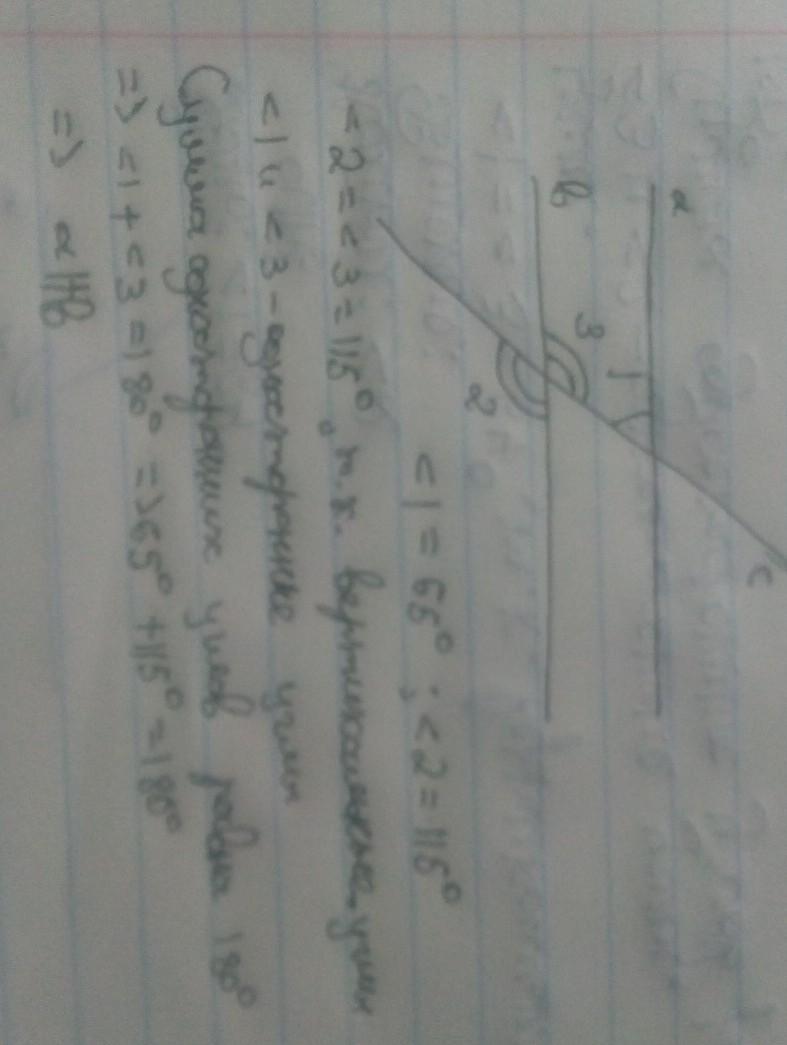 a
c
1
3
b
2
<1 = 65°; <2 = 115°
<2 = <3 = 115°, т.к. вертикальные углы
<1 и <3 - односторонние углы
Сумма односторонних углов равна 180°
=> <1 + <3 = 180° => 65° + 115° = 180°
=> a||b